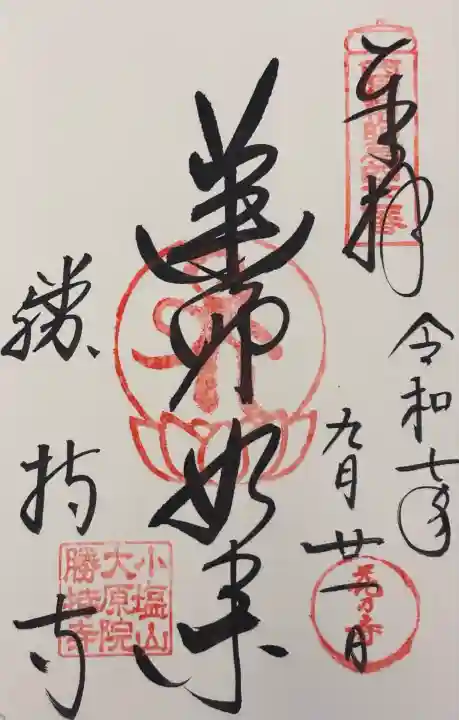 奉拝
令和七年
九月廿一日
花乃寺
薬師如来
勝持寺
小塩山
大原院
勝持寺